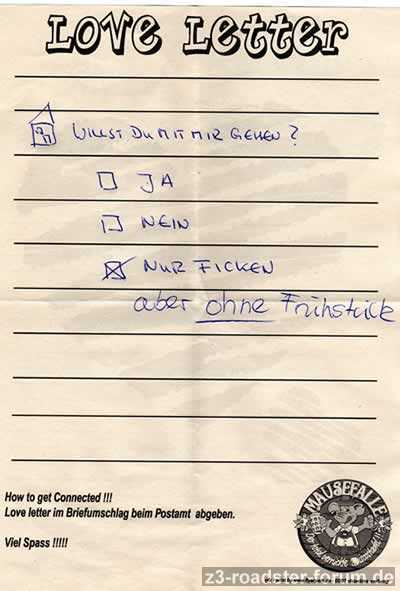 Love Letter
WILLST DU MIT MIR GEHEN?
JA
NEIN
NUR FICKEN
aber ohne Frühstück
How to get Connected !!!
Love letter im Briefumschlag beim Postamt abgeben.
Viel Spass !!!!!
MAUSEFALLE
z3-roadster-forum.de